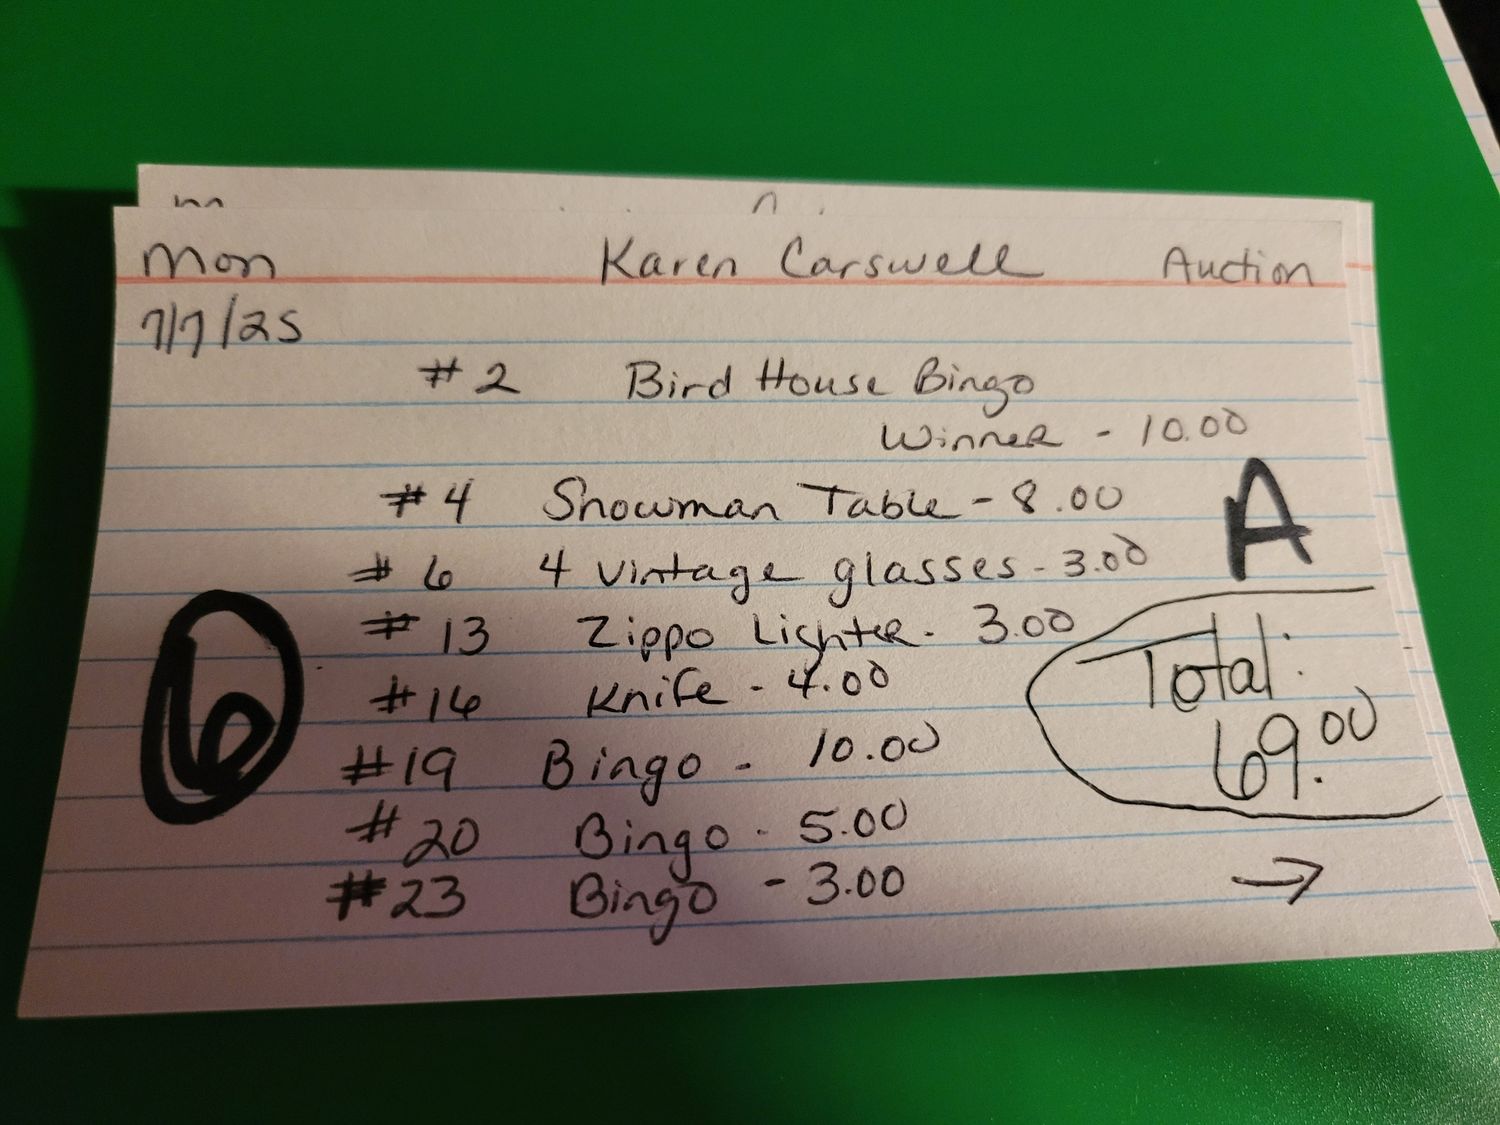 Mon Karen Carswell Auction
7/7/25
#2 Bird House Bingo
Winner - 10.00
#4 Snowman Table - 8.00
A
#6 4 vintage glasses - 3.00
#13 Zippo Lighter - 3.00
Total:
69.00
6
#16 Knife - 4.00
#19 Bingo - 10.00
#20 Bingo - 5.00
#23 Bingo - 3.00
→